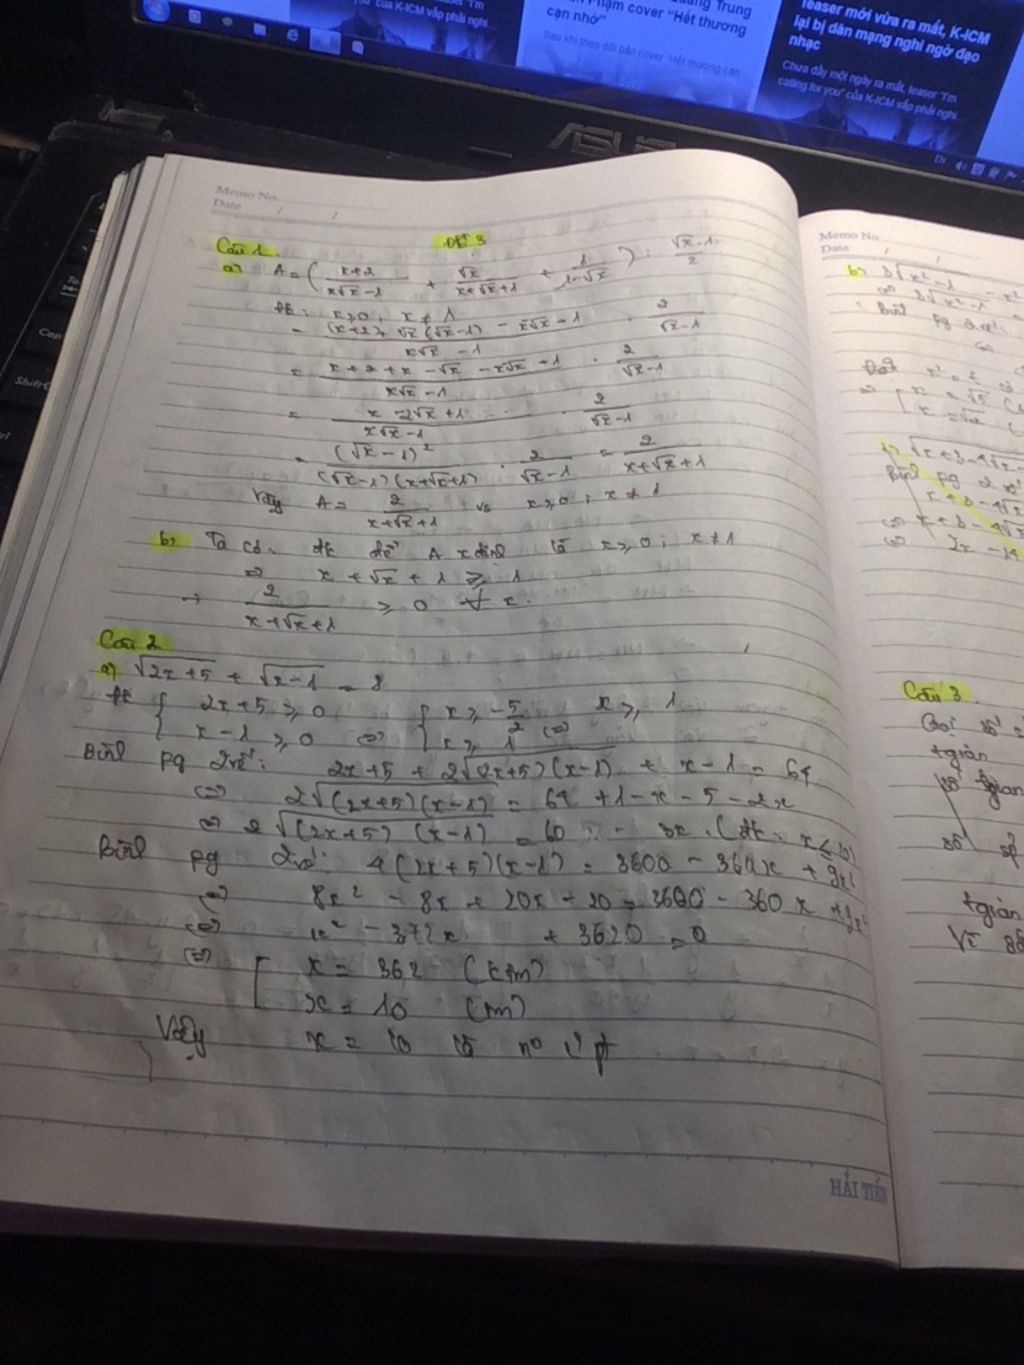 của K-ICM vấp phải nghi
Phạm cover "Hết thương
cạn nhớ"
Sau khi theo dõi bản cover "Hết thương cạn
teaser mới vừa ra mắt, K-ICM
lại bị dân mạng nghi ngờ đạo
nhạc
Chưa đầy một ngày ra mắt, teaser "I'm
calling for you" của K-ICM vấp phải nghi
EN
ASUS
Shift
Memo No.
Date / /
Câu 1 Đề 3
a) A = ( (x+2)/(x√x-1) + √x/(x+√x+1) + 1/(1-√x) ) : (√x-1)/2
đk: x≥0; x≠1
= ((x+2)+√x(√x-1) - x-√x-1)/(x√x-1) . 2/(√x-1)
= (x+2+x-√x-x-√x-1)/(x√x-1) . 2/(√x-1)
= (x-2√x+1)/(x√x-1) . 2/(√x-1)
= (√x-1)²/((√x-1)(x+√x+1)) . 2/(√x-1) = 2/(x+√x+1)
Vậy A = 2/(x+√x+1) vs x≥0; x≠1
b, Ta có: đk để A xđịnh là x≥0; x≠1
=> x+√x+1 ≥ 1
→ 2/(x+√x+1) ≥ 0 ∀x.
Câu 2
a) √2x+5 + √x-1 = 8
đk { 2x+5≥0 { x≥ -5/2 x≥1
x-1≥0 <=> x≥1 <=>
Bình pg 2 vế: 2x+5+2√(2x+5)(x-1) + x-1 = 64
<=> 2√(2x+5)(x-1) = 64+1-x-5-2x
<=> 2√(2x+5)(x-1) = 60 - 3x. (đk: x≤20)
Bình pg 2 vế: 4(2x+5)(x-1) = 3600 - 360x + 9x²
<=> 8x² - 8x + 20x - 20 = 3600 - 360x + 9x²
<=> x² - 372x + 3620 = 0
<=> [ x = 362 (ktm)
x = 10 (tm)
Vậy x = 10 là no pt
HẢI TIẾN
Memo No.
Date / /
b, 3√x²-1 - x²
<=> 3√x²-1
Bình pg 2 vế:
√x+3-4√x-
Bình pg 2 vế
x+3-4√x
<=> x+3-4√x
<=> 2x -14
Câu 3
Gọi số
tgian
số tgian
số sp
tgian
Vì